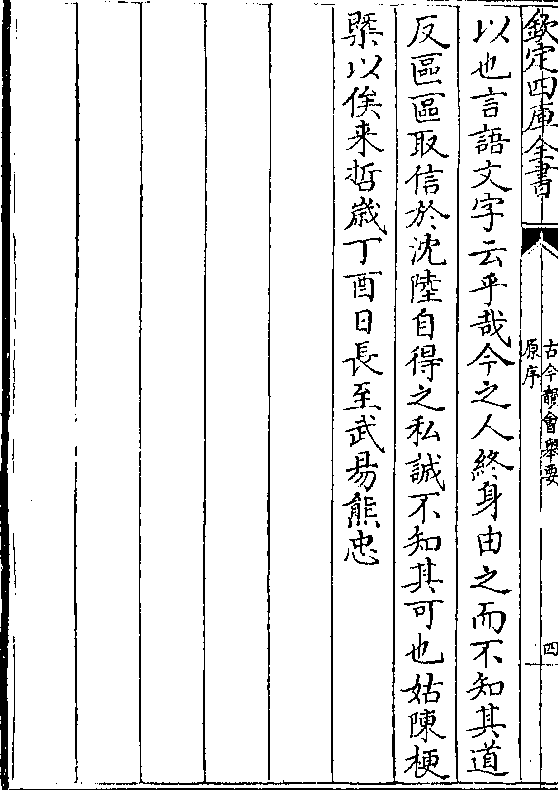 欽定四庫全書
古今韻會舉要
原序
四
以也言語文字云乎哉今之人終身由之而不知其道
反區區取信於沈陸自得之私誠不知其可也姑陳梗
槩以俟来哲歳丁酉日長至武昜熊忠